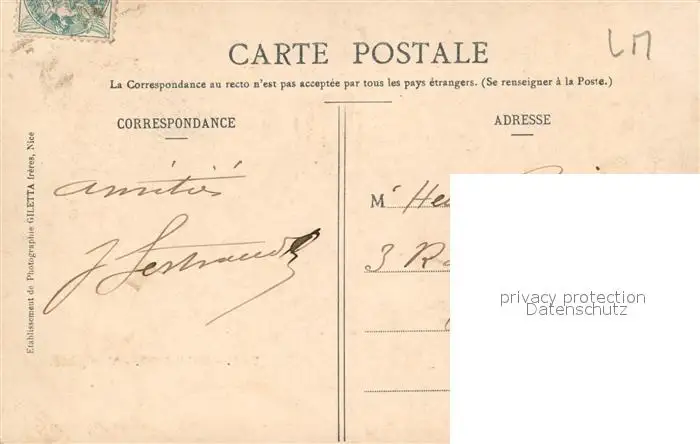 LM
CARTE POSTALE
La Correspondance au recto n'est pas acceptée par tous les pays étrangers. (Se renseigner à la Poste.)
CORRESPONDANCE
amitiés
Etablissement de Photographie GILETTA frères, Nice
ADRESSE
M
3
privacy protection
Datenschutz